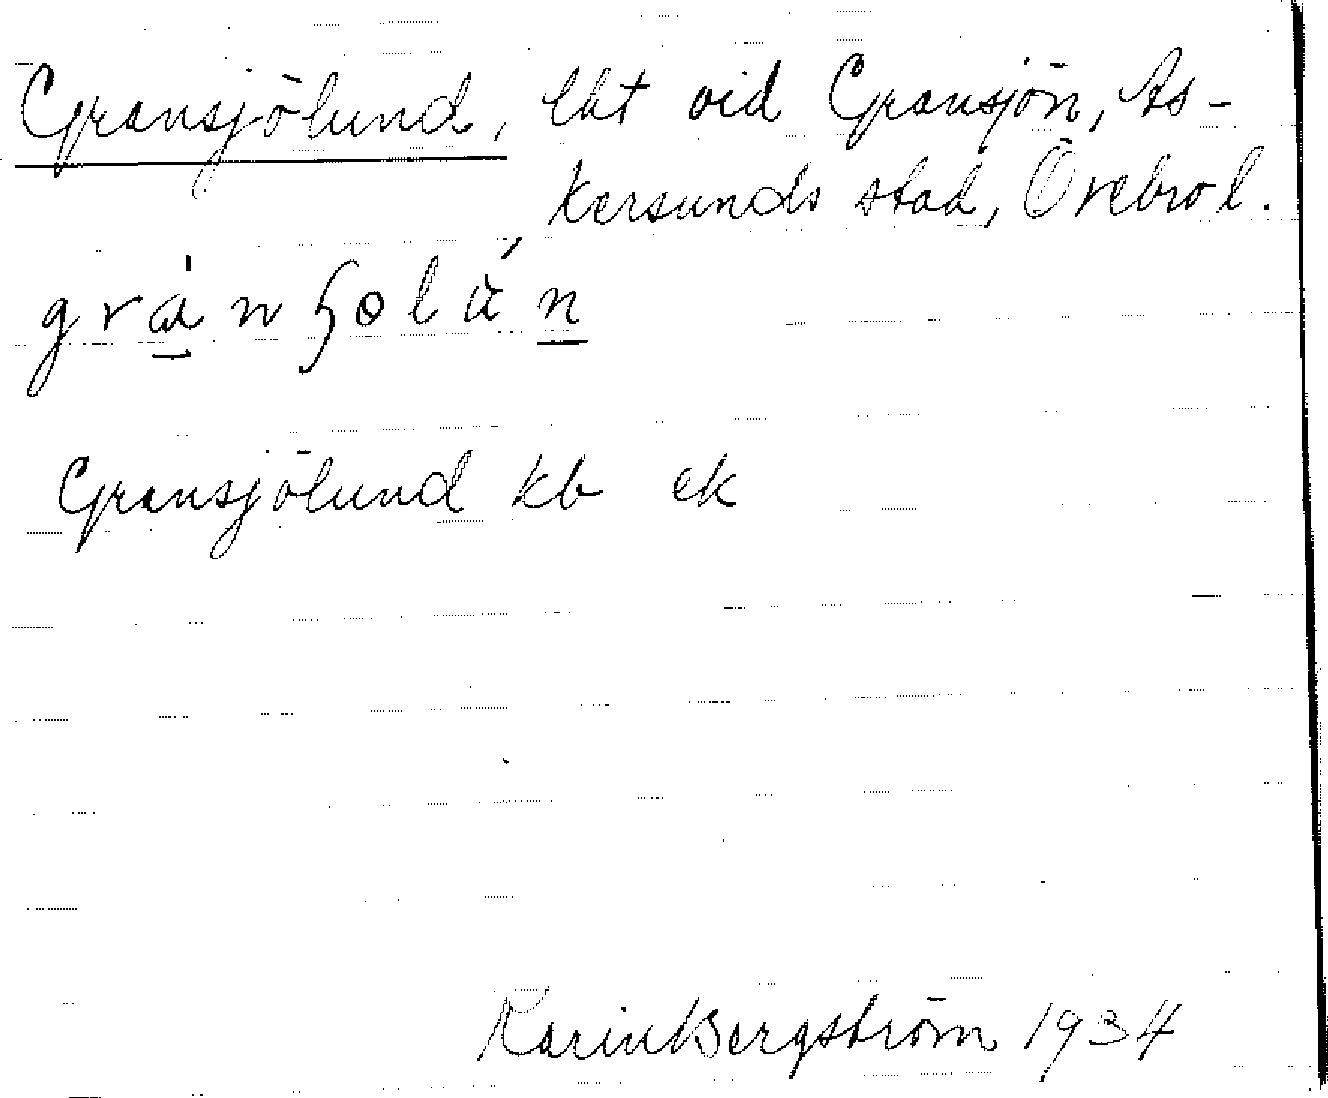 Gransjölund, lht vid Gransjön, As-
kersunds stad, Örebro l.
Gransjölund kb ek
Karin Bergström 1934